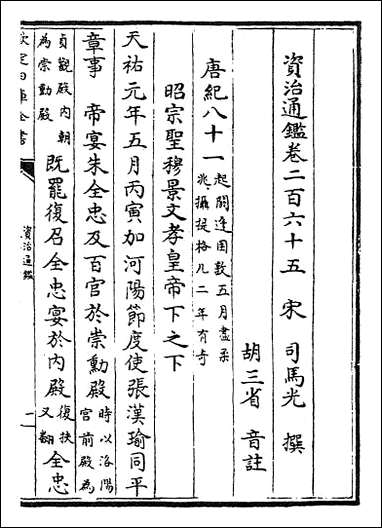 資治通鑑卷二百六十五 宋 司馬光 撰
胡三省 音註
唐紀八十一 起閼逢困敦五月盡柔兆攝提格凡二年有奇
昭宗聖穆景文孝皇帝下之下
天祐元年五月丙寅加河陽節度使張漢瑜同平
章事 帝宴朱全忠及百官於崇勳殿 時以洛陽宮前殿為
貞觀殿内朝為崇勳殿 既罷復召全忠宴於内殿 復扶又翻 全忠
欽定四庫全書
資治通鑑
一